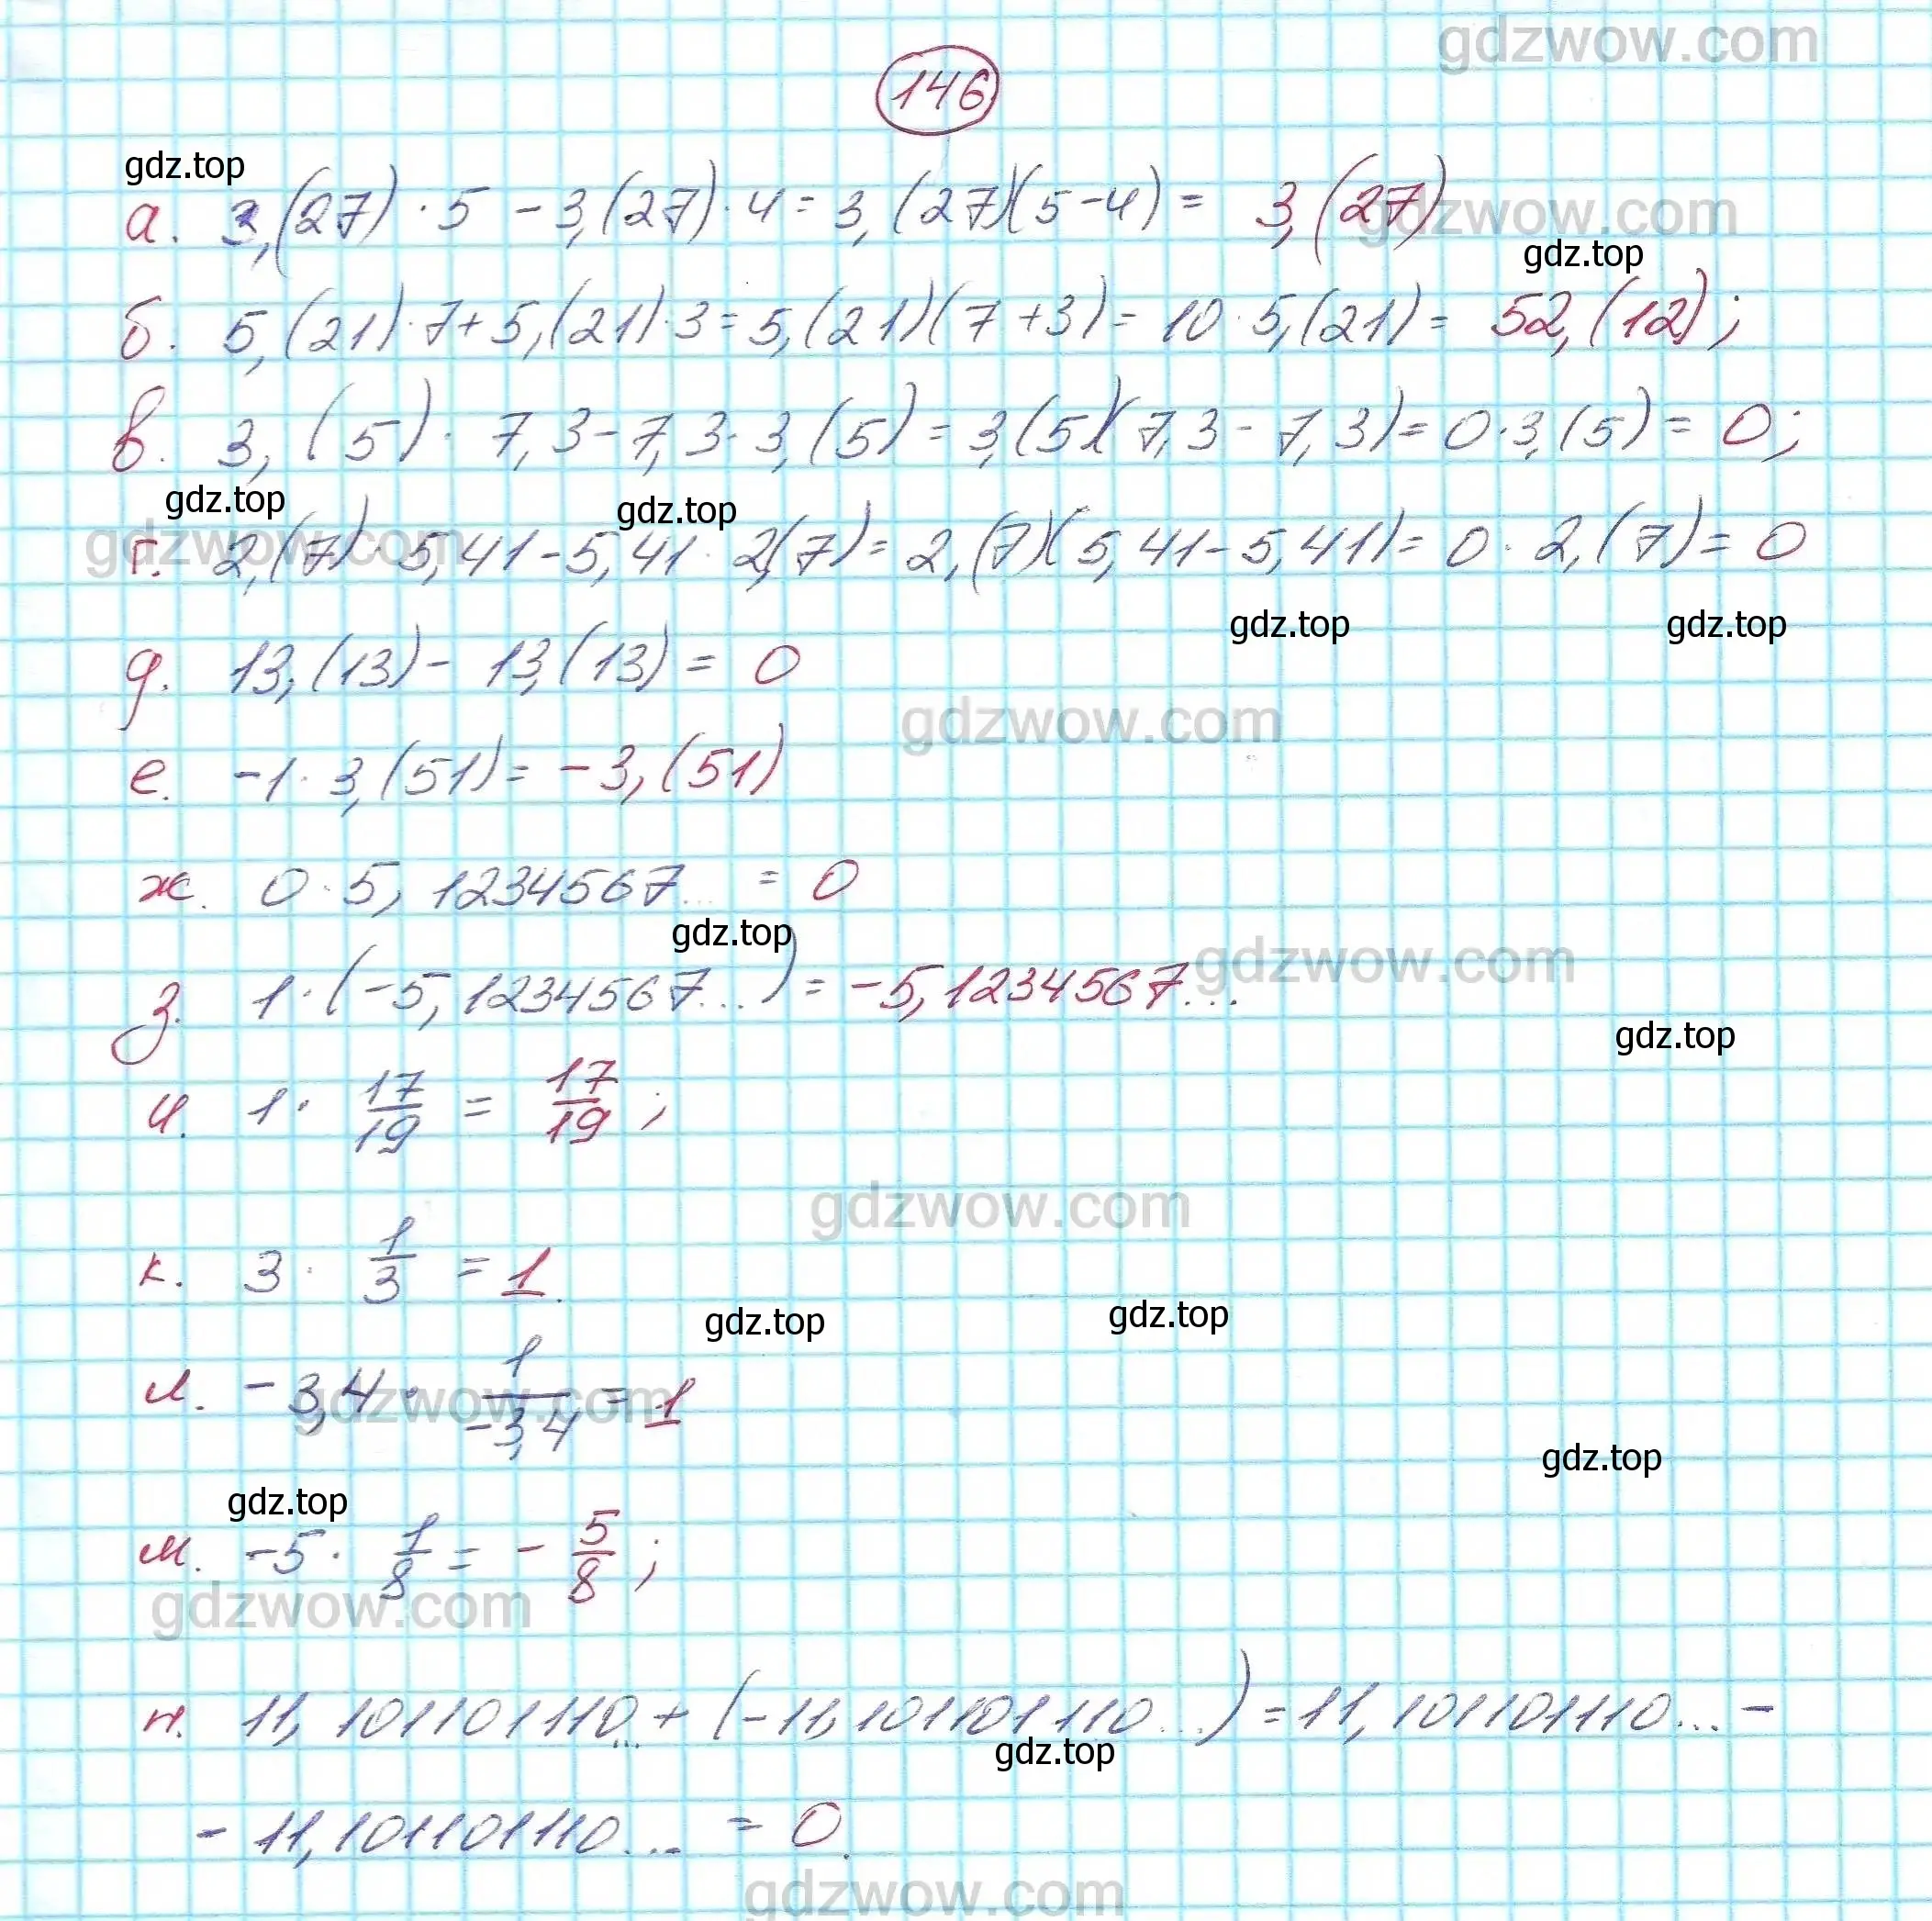 gdzwow.com
146
gdz.top
а. 3,(27)·5 - 3,(27)·4 = 3,(27)(5-4) = 3,(27)
gdzwow.com
gdz.top
б. 5,(21)·7 + 5,(21)·3 = 5,(21)(7+3) = 10·5,(21) = 52,(12);
в. 3,(5)·7,3 - 7,3·3,(5) = 3,(5)(7,3 - 7,3) = 0·3,(5) = 0;
gdz.top gdz.top
gdzwow.com
г. 2,(7)·5,41 - 5,41·2,(7) = 2,(7)(5,41 - 5,41) = 0·2,(7) = 0
gdz.top gdz.top
д. 13,(13) - 13,(13) = 0
gdzwow.com
е. -1·3,(51) = -3,(51)
ж. 0·5,1234567... = 0
gdz.top
gdzwow.com
з. 1·(-5,1234567...) = -5,1234567...
gdz.top
и. 1· 17/19 = 17/19;
gdzwow.com
к. 3· 1/3 = 1.
gdz.top gdz.top
л. -3,4· 1/-3,4 = 1
gdzwow.com
gdz.top
gdz.top
м. -5· 1/8 = - 5/8;
gdzwow.com
н. 11,101101110... + (-11,101101110...) = 11,101101110... -
gdz.top
- 11,101101110... = 0.
gdzwow.com